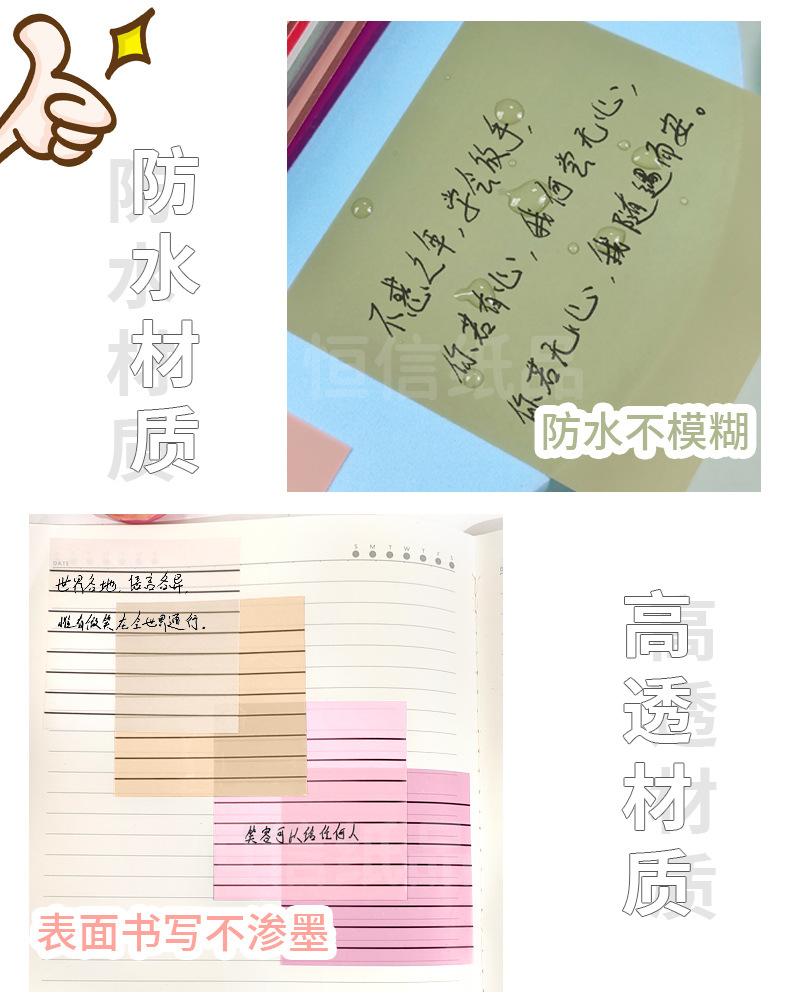 防水材质
不惑之年,学会放手,
你若有心,我何尝无心,
你若无心,我随遇而安。
恒信纸品
防水不模糊
S M T W T F S
DATE
世界各地,语言各异,
唯有微笑在全世界通行.
笑容可以给任何人
表面书写不渗墨
高透材质